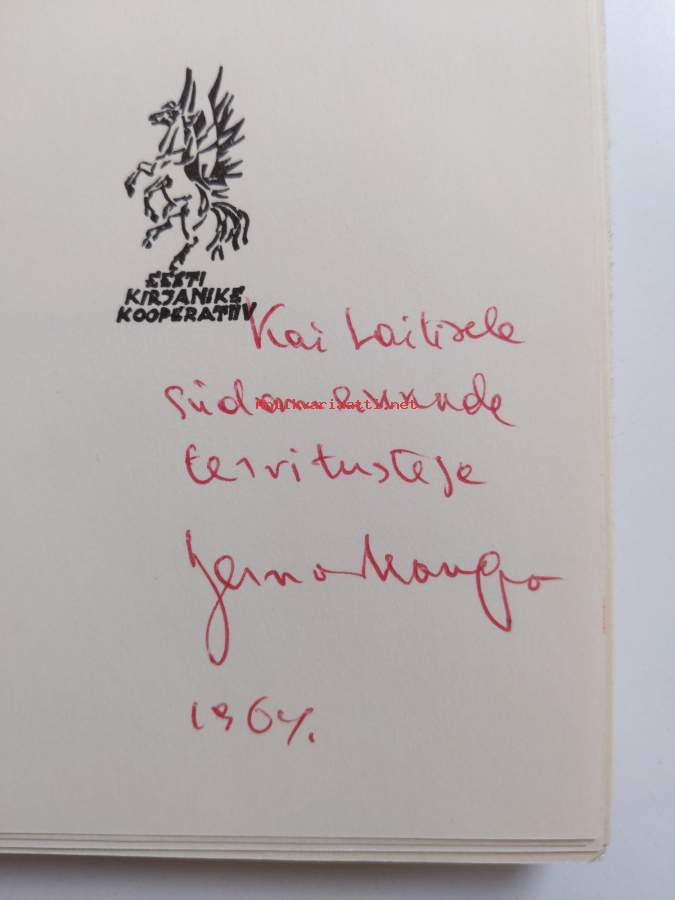 EESTI
KIRJANIKE
KOOPERATIIV
Kai Laitisele
südamlikkude
tervitustega
Bernard Kangro
1964.
Antikvariaatti.net